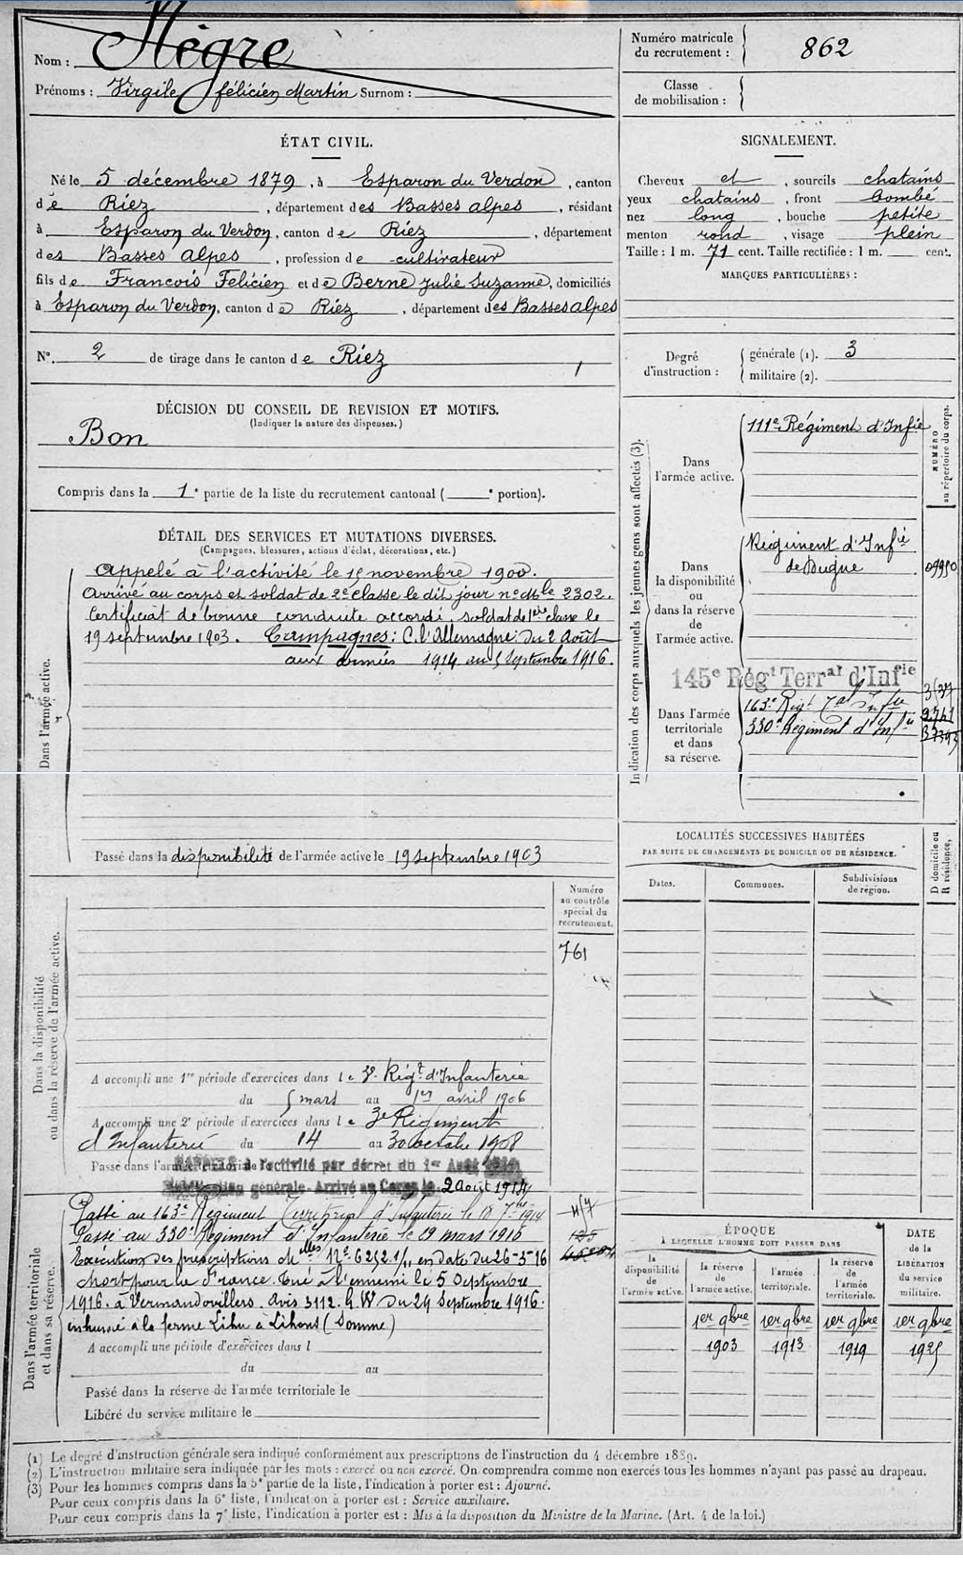 Nom : Nègre
Prénoms : Virgile félicien Martin Surnom :
Numéro matricule du recrutement : 862
Classe de mobilisation :
ÉTAT CIVIL.
Né le 5 décembre 1879, à Esparon du Verdon, canton
de Riez, département des Basses alpes, résidant
à Esparon du Verdon, canton de Riez, département
des Basses Alpes, profession de cultivateur
fils de François Félicien et de Berne Julie Suzanne, domiciliés
à Esparon du Verdon, canton de Riez, département des Basses alpes
SIGNALEMENT.
Cheveux et, sourcils chatains
yeux chatains, front bombé
nez long, bouche petite
menton rond, visage plein
Taille : 1 m. 71 cent. Taille rectifiée : 1 m. cent.
MARQUES PARTICULIÈRES :
N°. 2 de tirage dans le canton de Riez
1
Degré d'instruction :
générale (1). 3
militaire (2).
DÉCISION DU CONSEIL DE REVISION ET MOTIFS.
(Indiquer la nature des dispenses.)
Bon
Compris dans la 1e partie de la liste du recrutement cantonal ( e portion).
DÉTAIL DES SERVICES ET MUTATIONS DIVERSES.
(Campagnes, blessures, actions d'éclat, décorations, etc.)
Dans l'armée active.
Appelé à l'activité le 15 novembre 1900.
Arrivé au corps et soldat de 2e classe le dit jour n° Mle 2302.
Certificat de bonne conduite accordé. soldat de 1ère classe le
19 septembre 1903. Campagnes : C. l'Allemagne du 2 Août
aux armées 1914 au 5 Septembre 1916.
Passé dans la disponibilité de l'armée active le 19 septembre 1903
Indication des corps auxquels les jeunes gens sont affectés (3).
NUMÉRO au répertoire du corps.
Dans l'armée active.
111e Régiment d'Infie
Dans la disponibilité ou dans la réserve de l'armée active.
Régiment d'Infie
de Digne
Dans l'armée territoriale et dans sa réserve.
145e Régt Terral d'Infie
163e Rigt Tal Infie
330e Régiment d'Infie
LOCALITÉS SUCCESSIVES HABITÉES
PAR SUITE DE CHANGEMENTS DE DOMICILE OU DE RÉSIDENCE.
Dates.
Communes.
Subdivisions de région.
D domicile ou R résidence.
Dans la disponibilité ou dans la réserve de l'armée active.
Numéro au contrôle spécial du recrutement.
761
A accompli une 1re période d'exercices dans le 3e Régt d'Infanterie
du 5 mars au 1er avril 1906
A accompli une 2e période d'exercices dans le 3e Régiment
d'Infanterie du 14 au 30 octobre 1908
Passé dans l'armée territoriale
à l'activité par décret du 1er Août
générale Arrivé au Corps le 2 Août 1914
Dans l'armée territoriale et dans sa réserve.
Passé au 163e Régiment Territorial d'Infanterie le 18 7bre 1914
Passé au 330e Régiment d'Infanterie le 19 mars 1916
Exécution des prescriptions Mlles N° 6252.1/11 en date du 26-3-16
Mort pour la France. Tué à l'ennemi le 5 Septembre
1916. à Vermandovillers. Avis 3112. G.W du 29 Septembre 1916.
inhumé à la ferme Lihu à Lihons (Somme)
A accompli une période d'exercices dans l
du au
Passé dans la réserve de l'armée territoriale le
Libéré du service militaire le
ÉPOQUE
À LAQUELLE L'HOMME DOIT PASSER DANS
la disponibilité de l'armée active.
la réserve de l'armée active.
l'armée territoriale.
la réserve de l'armée territoriale.
DATE de la LIBÉRATION du service militaire.
1er 9bre 1er 9bre 1er 9bre 1er 9bre
1903 1913 1919 1925
(1) Le degré d'instruction générale sera indiqué conformément aux prescriptions de l'instruction du 4 décembre 1889.
(2) L'instruction militaire sera indiquée par les mots : exercé ou non exercé. On comprendra comme non exercés tous les hommes n'ayant pas passé au drapeau.
(3) Pour les hommes compris dans la 5e partie de la liste, l'indication à porter est : Ajourné.
Pour ceux compris dans la 6e liste, l'indication à porter est : Service auxiliaire.
Pour ceux compris dans la 7e liste, l'indication à porter est : Mis à la disposition du Ministre de la Marine. (Art. 4 de la loi.)